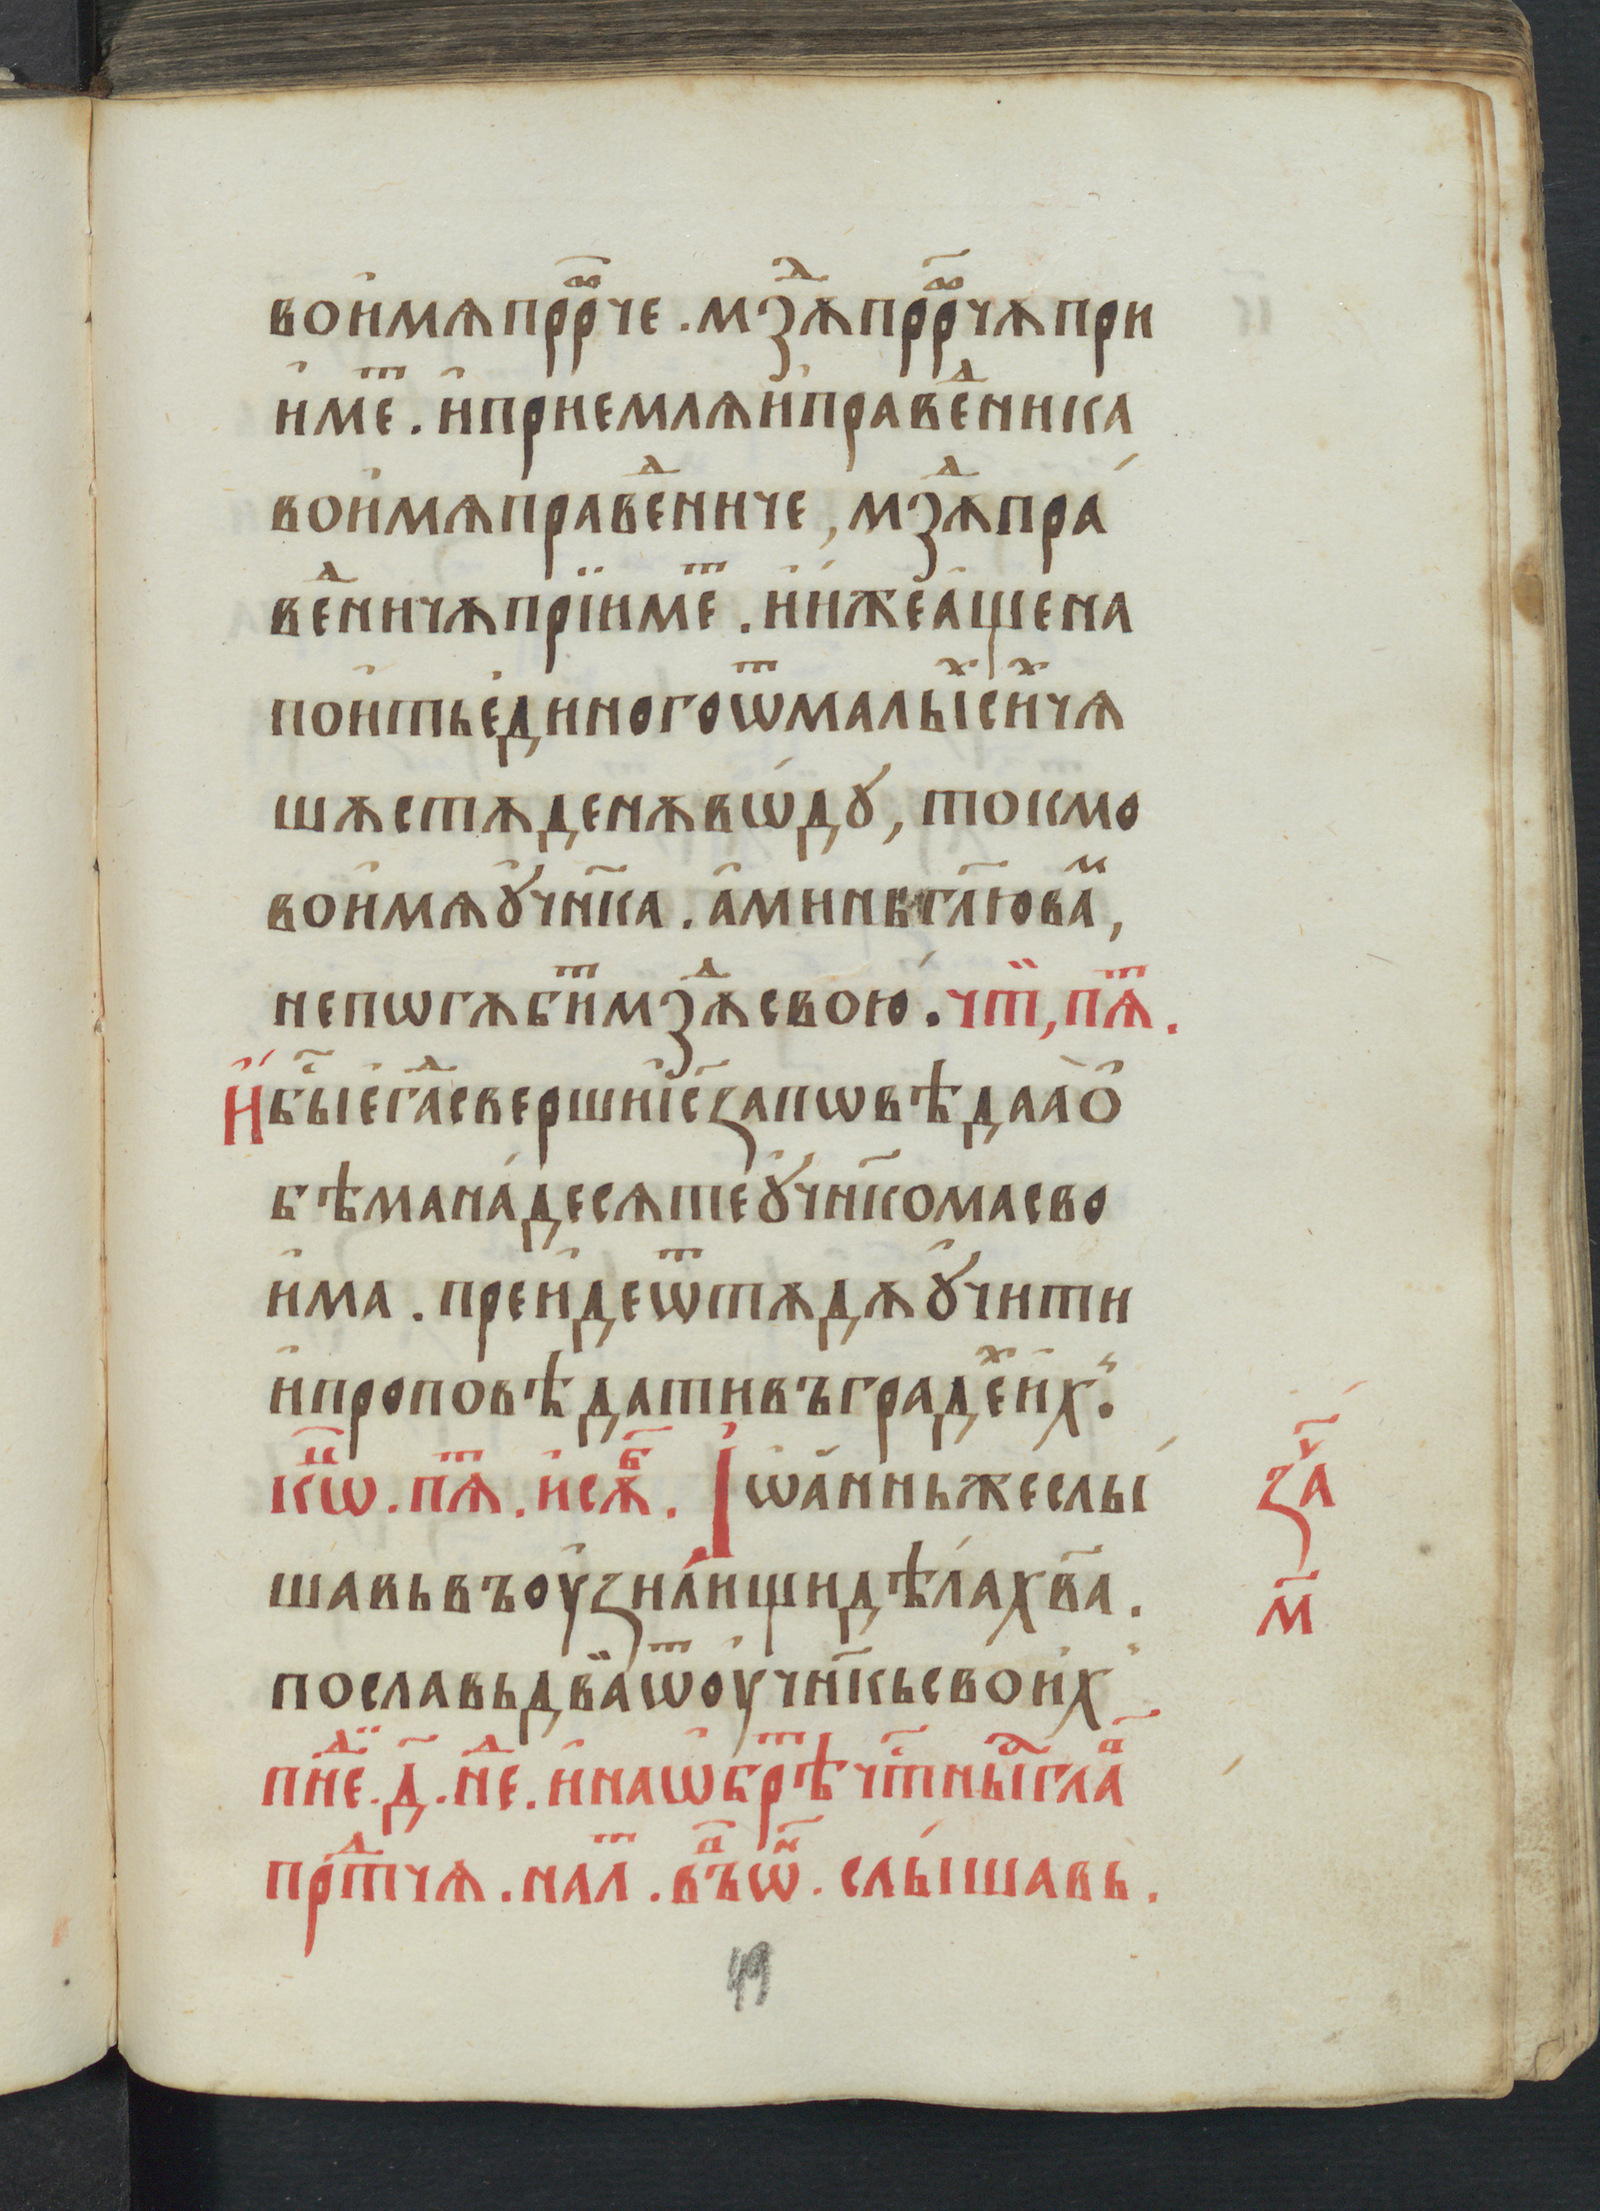 во и҆мѧ прⷪ҇рче . мзⷣѧ прⷪ҇рчѧ при
и҆меⷮ . и҆ приемлѧи҆ правеⷣника
во и҆мѧ правеⷣниче , мзⷣѧ пра́
веⷣничѧ прїимеⷮ . и҆ и́же а҆ще на
пои҆ть є҆диного ѿ малыⷯ си҆ⷯ чѧ
шѧ стѧдены ѧ вѡ́дꙋ , токмо
во и҆мѧ ᲂу҆чн҃ка . а҆минь гл҃ю ваⷨ ,
не пѡгѧбиⷮ мзⷣѧ свою̀ . чтⷮ , пѧⷮ .
И҆́ быⷭ҇ є҆гдⷣа сверши і҆с҃ заповѣдаа̀ о҆
бѣма на́десѧте ᲂу҆чн҃кома сво
и҆ма . преи҆де ѿтѧдѧ ᲂу҆чити
и҆ проповѣдати въ градеⷯ и҆х .
кⷰ҇ѡ . пѧⷮ . и сѧⷠ . І҆ѡа҆ннь же слы
шавь въ оу҆зилищи дѣла́ хв҃а .
посла̀вь два̀ ѿ оу҆чн҃кь свои҆х
пнⷣе . д҃ . нⷣе . и҆ на ѡ҆брѣⷮ чтⷭ҇ныⷽ гла҃
прⷣтчѧ . на лⷮ . въⷫ҇ ѡ҆нⷩ҇ . слы́шавь .
заⷱ҇
м҃
49